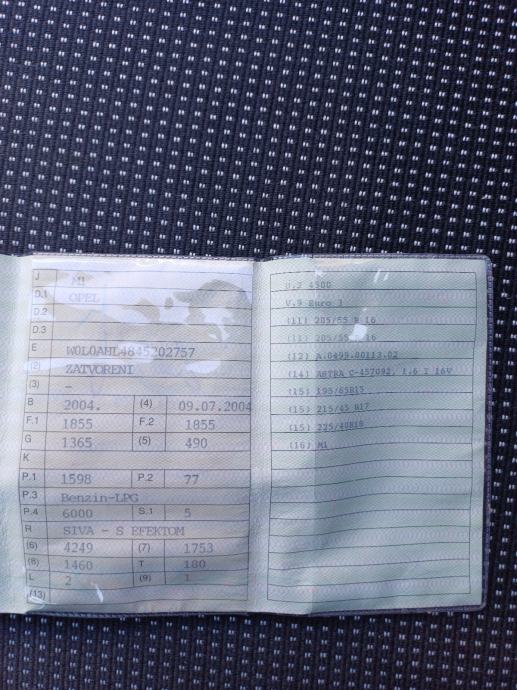 J M1
D.1 OPEL
D.2
D.3
E W0L0AHL4845202757
(2) ZATVORENI
(3) -
B 2004. (4) 09.07.2004
F.1 1855 F.2 1855
G 1365 (5) 490
K
P.1 1598 P.2 77
P.3 Benzin-LPG
P.4 6000 S.1 5
R SIVA - S EFEKTOM
(6) 4249 (7) 1753
(8) 1460 T 180
L 2 (9) 1
(13)
U.2 4500
V.9 Euro 3
(11) 205/55 R 16
(11) 205/55 R 16
(12) A.0499.00113.02
(14) ASTRA C-457092, 1.6 I 16V
(15) 195/65R15
(15) 215/45 R17
(15) 225/40R18
(16) M1